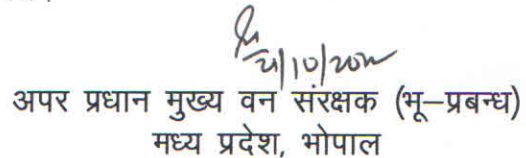 अपर प्रधान मुख्य वन संरक्षक (भू–प्रबन्ध)
मध्य प्रदेश, भोपाल